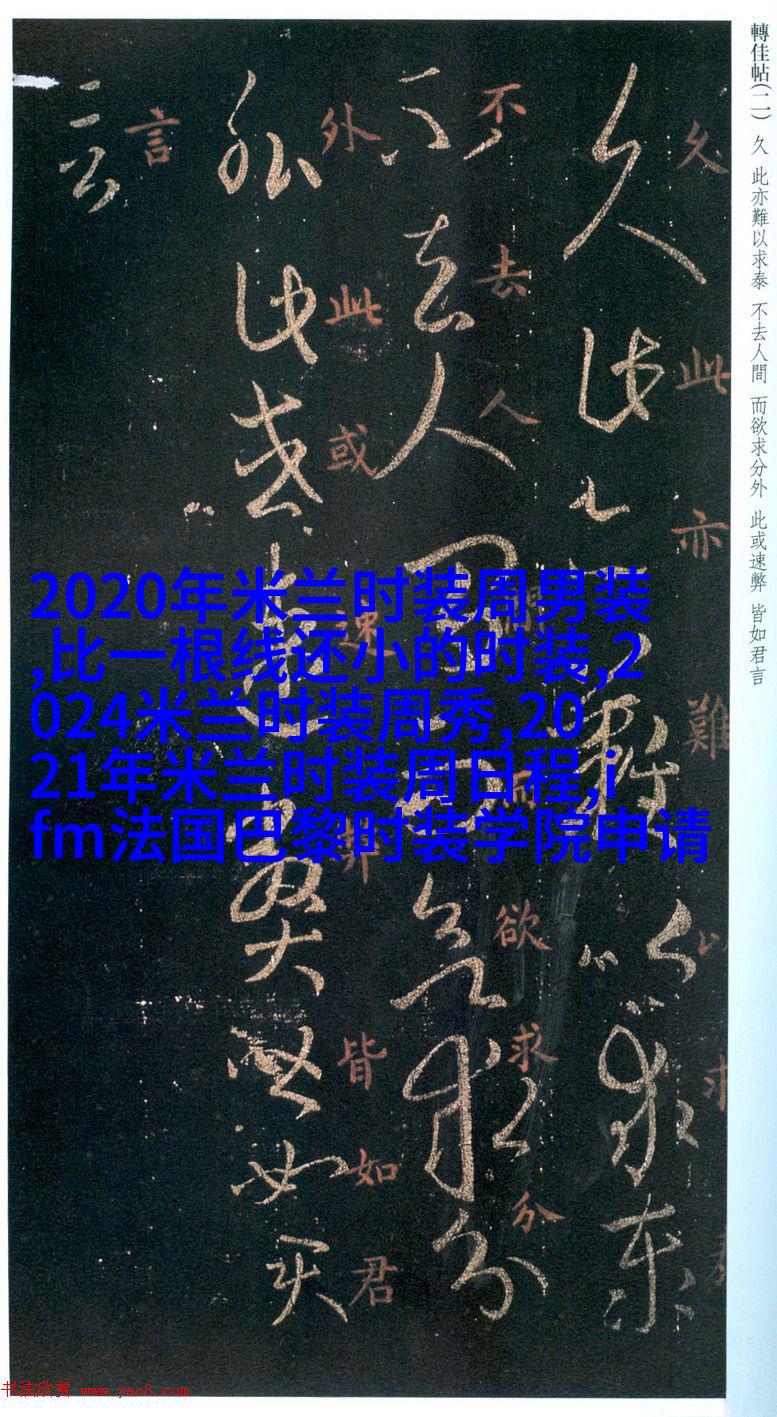 轉佳帖(二) 久 此亦難以求泰 不去人間 而欲求分外 此或速弊 皆如君言
久此亦難以求
不去人間而欲求分
外此或速弊皆如君
言
2020年米兰时装周男装
,比一根线还小的时装,2
024米兰时装周秀,20
21年米兰时装周日程,i
fm法国巴黎时装学院申请
书法欣赏 www.yac8.com